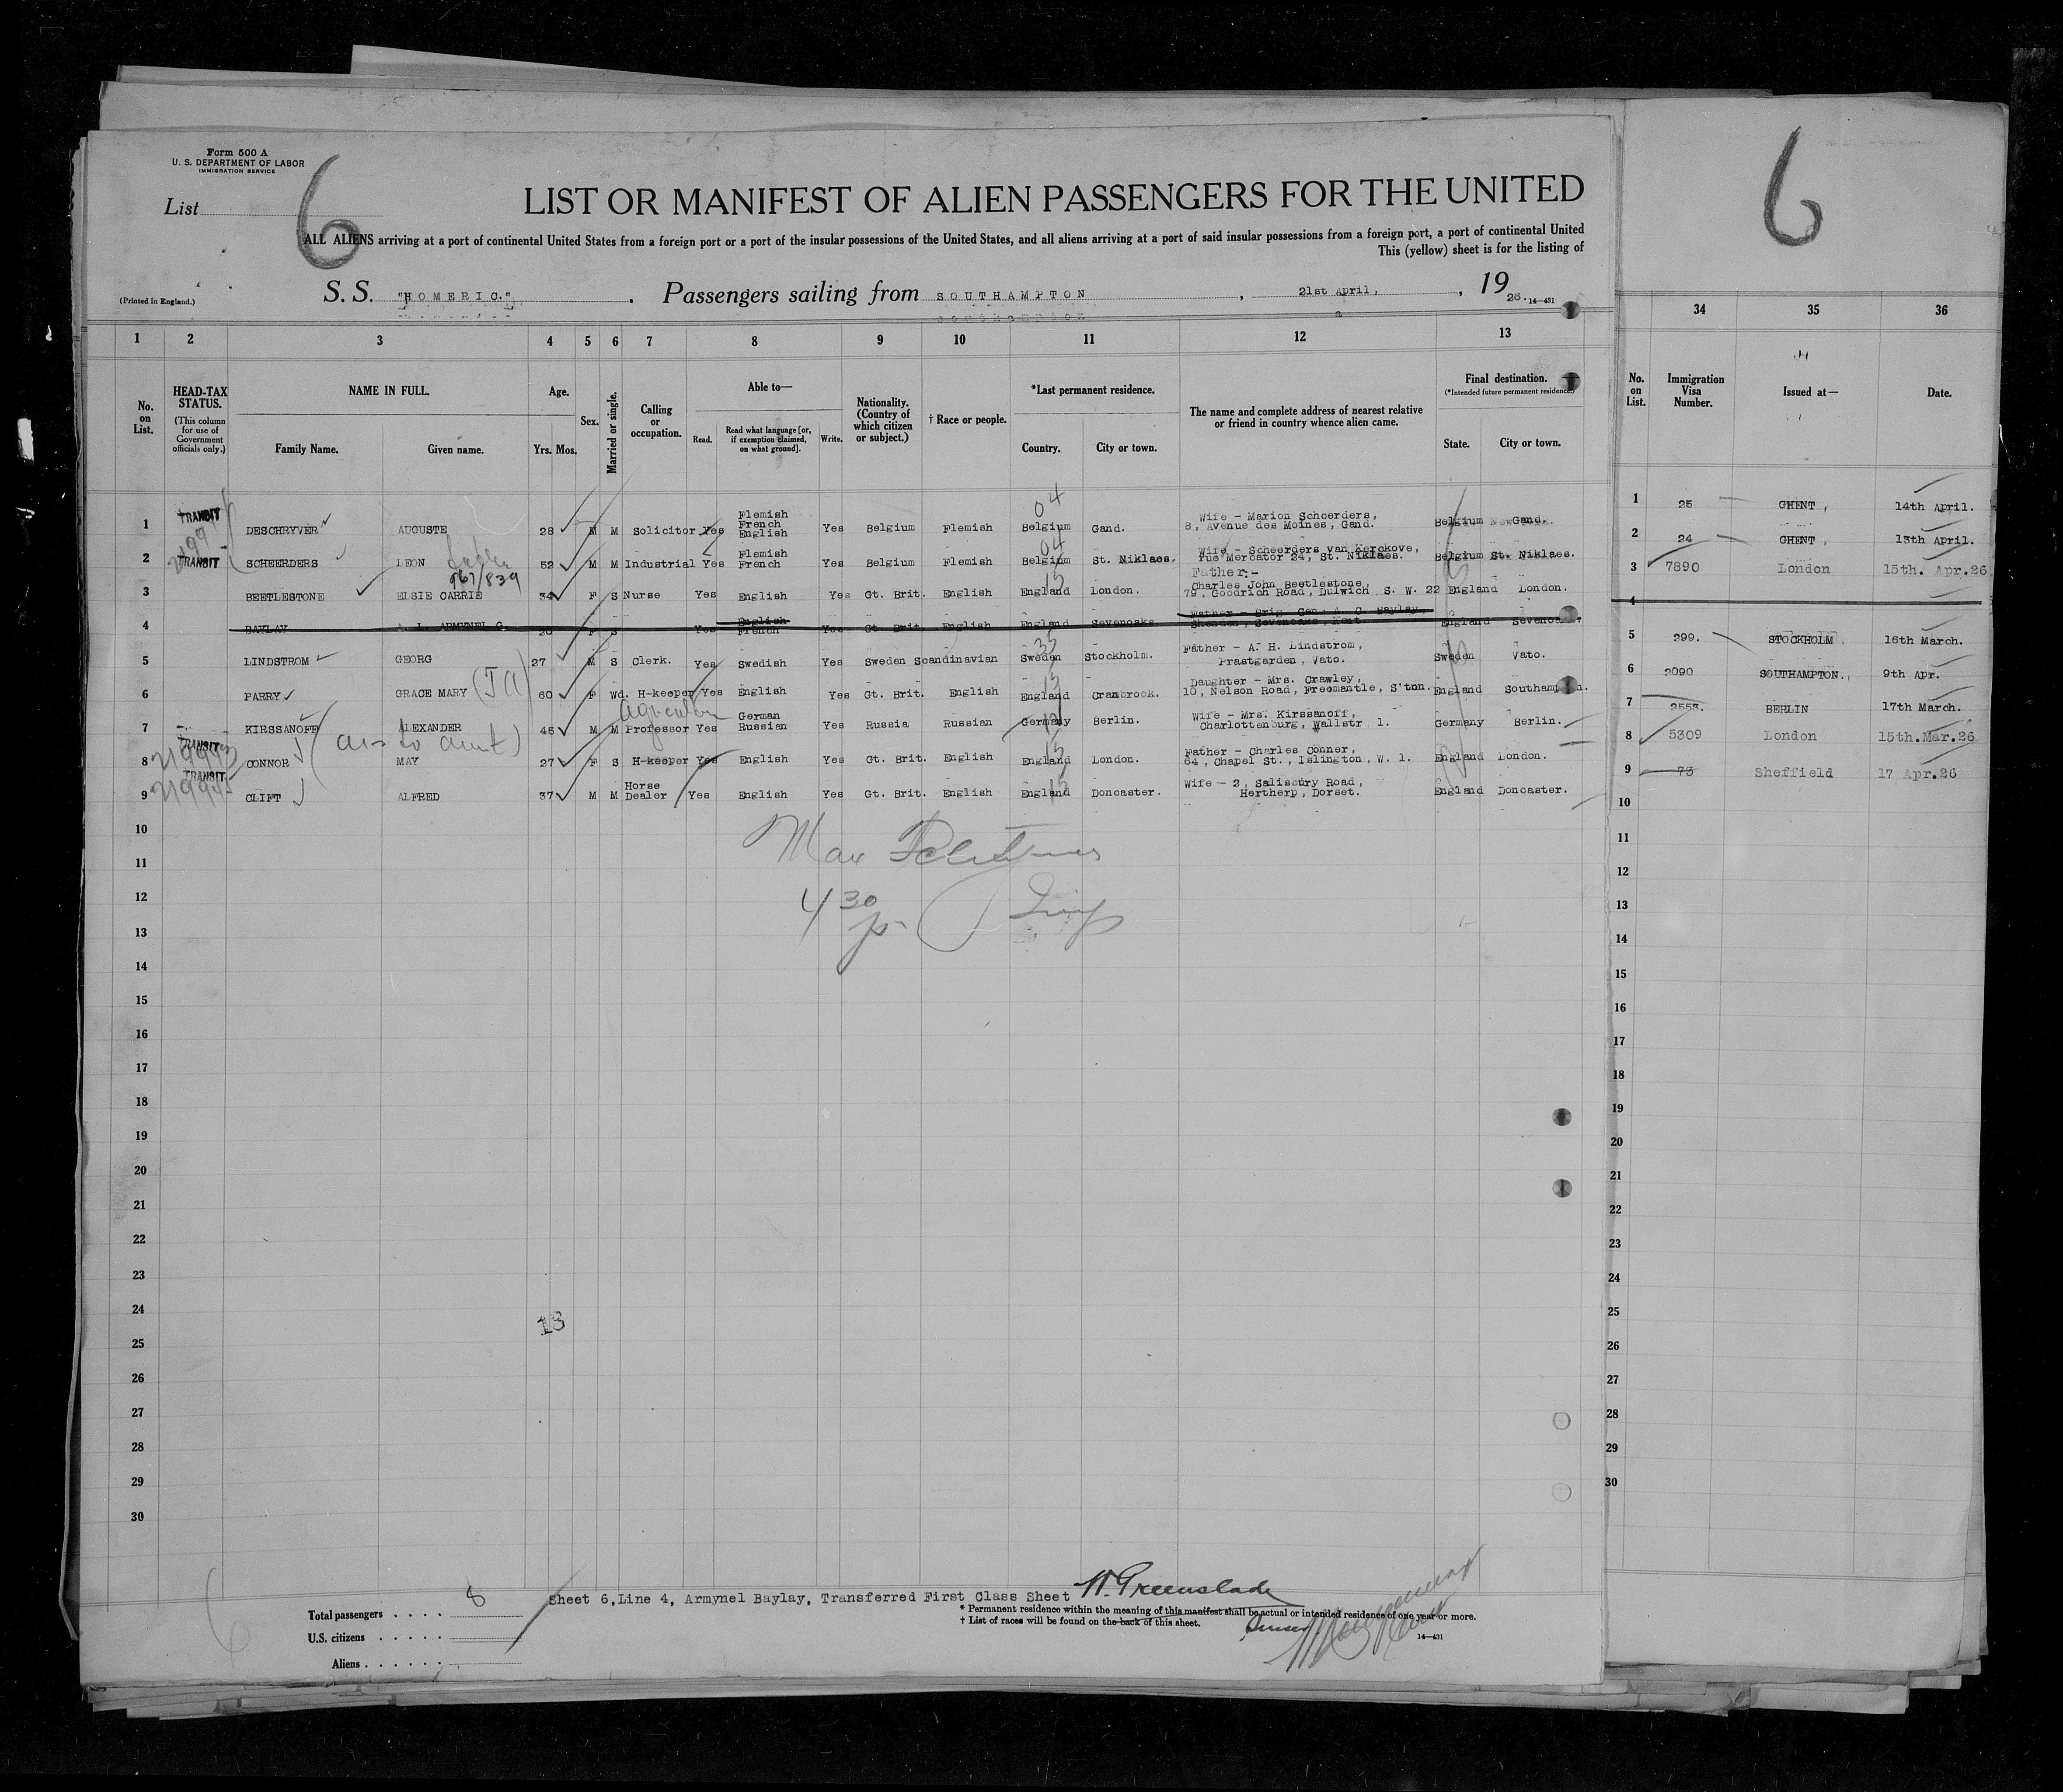 Form 500 A
U. S. DEPARTMENT OF LABOR
IMMIGRATION SERVICE
List
6
6
LIST OR MANIFEST OF ALIEN PASSENGERS FOR THE UNITED
ALL ALIENS arriving at a port of continental United States from a foreign port or a port of the insular possessions of the United States, and all aliens arriving at a port of said insular possessions from a foreign port, a port of continental United
This (yellow) sheet is for the listing of
(Printed in England.)
S. S. "HOMERIC." Passengers sailing from SOUTHAMPTON, 21st April, 1926. 14—431
1 2 3 4 5 6 7 8 9 10 11 12 13 34 35 36
No. on List.
HEAD-TAX STATUS.
(This column for use of Government officials only.)
NAME IN FULL.
Family Name. Given name.
Age.
Yrs. Mos.
Sex.
Married or single.
Calling or occupation.
Able to—
Read. Read what language [or, if exemption claimed, on what ground]. Write.
Nationality. (Country of which citizen or subject.)
† Race or people.
*Last permanent residence.
Country. City or town.
The name and complete address of nearest relative or friend in country whence alien came.
Final destination.
(*Intended future permanent residence.)
State. City or town.
No. on List.
Immigration Visa Number.
Issued at—
Date.
1 TRANSIT DESCHRYVER AUGUSTE 28 M M Solicitor Yes Flemish French English Yes Belgium Flemish 04 Belgium Gand. Wife - Marion Schoerders, 8, Avenue des Moines, Gand. Belgium Gand. 1 25 GHENT, 14th April.
2 TRANSIT SCHEERDERS LEON 52 M M Industrial Yes Flemish French Yes Belgium Flemish 04 Belgium St. Niklaes. Wife - Scheerders van Kerckove, Rue Mercator 24, St. Niklaes. Belgium St. Niklaes. 2 24 GHENT, 13th April.
3 BEETLESTONE ELSIE CARRIE 967/839 34 F S Nurse Yes English Yes Gt. Brit. English 15 England London. Father:- Charles John Beetlestone, 79, Goodrich Road, Dulwich S. W. 22 England London. 3 7890 London 15th. Apr.26
4 BAYLAY A. L. ARMYNEL G. 26 F S Yes English French Yes Gt. Brit. English England Sevenoaks. Father - Brig. Gen. A. C. Baylay Sevenoaks, Kent. England Sevenoaks. 4
5 LINDSTROM GEORG 27 M S Clerk. Yes Swedish Yes Sweden Scandinavian 35 Sweden Stockholm. Father - A. H. Lindstrom, Prastgarden, Vato. Sweden Vato. 5 299. STOCKHOLM 16th March.
6 PARRY GRACE MARY 60 F Wd. H-keeper Yes English Yes Gt. Brit. English 15 England Cranbrook. Daughter - Mrs. Crawley, 10, Nelson Road, Freemantle, S'ton. England Southampton. 6 2090 SOUTHAMPTON. 9th Apr.
7 KIRSSANOFF ALEXANDER 45 M M Professor Yes German Russian Yes Russia Russian Germany Berlin. Wife - Mrs. Kirssanoff, Charlottenburg, Wallstr 1. Germany Berlin. 7 2553. BERLIN 17th March.
8 TRANSIT CONNOR MAY 27 F S H-keeper Yes English Yes Gt. Brit. English 15 England London. Father - Charles Conner, 64, Chapel St., Islington, W. 1. England London. 8 5309 London 15th.Mar.26
9 TRANSIT CLIFT ALFRED 37 M M Horse Dealer Yes English Yes Gt. Brit. English 15 England Doncaster. Wife - 2, Salisbury Road, Hertherp, Dorset. England Doncaster. 9 73 Sheffield 17 Apr.26
10 10
11 Max 11
12 4 30 12
13 p. 13
14 14
15 15
16 16
17 17
18 18
19 19
20 20
21 21
22 22
23 23
24 24
18
25 25
26 26
27 27
28 28
29 29
30 30
Sheet 6, Line 4, Armynel Baylay, Transferred First Class Sheet W. Greenslade
Total passengers . . . . 8
U.S. citizens . . . . .
Aliens . . . . . .
* Permanent residence within the meaning of this manifest shall be actual or intended residence of one year or more.
† List of races will be found on the back of this sheet.
14—431